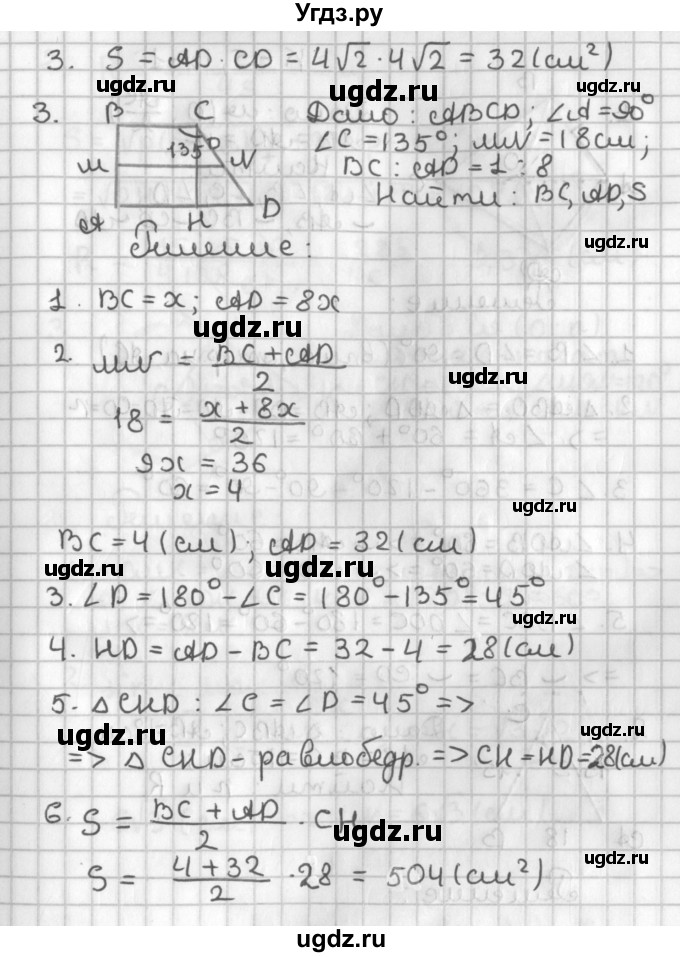 Угдз.ру
3. S = AD · CD = 4√2 · 4√2 = 32 (см²)
ugdz.ru ugdz.ru ugdz.ru
3. B C Дано: ABCD; ∠A = 90°
135° ∠C = 135°; MN = 18 см;
M N BC : AD = 1 : 8
A H D Найти: BC, AD, S
Решение: ugdz.ru
1. BC = x; AD = 8x
ugdz.ru
2. MN = BC + AD / 2
ugdz.ru
18 = x + 8x / 2
9x = 36
x = 4
ugdz.ru
BC = 4 (см); AD = 32 (см)
ugdz.ru ugdz.ru
3. ∠D = 180° - ∠C = 180° - 135° = 45°
ugdz.ru
4. HD = AD - BC = 32 - 4 = 28 (см)
5. △CHD : ∠C = ∠D = 45° =>
ugdz.ru ugdz.ru
=> △CHD - равнобедр. => CH = HD = 28 (см)
6. S = BC + AD / 2 · CH
ugdz.ru
S = 4 + 32 / 2 · 28 = 504 (см²)
ugdz.ru
ugdz.ru